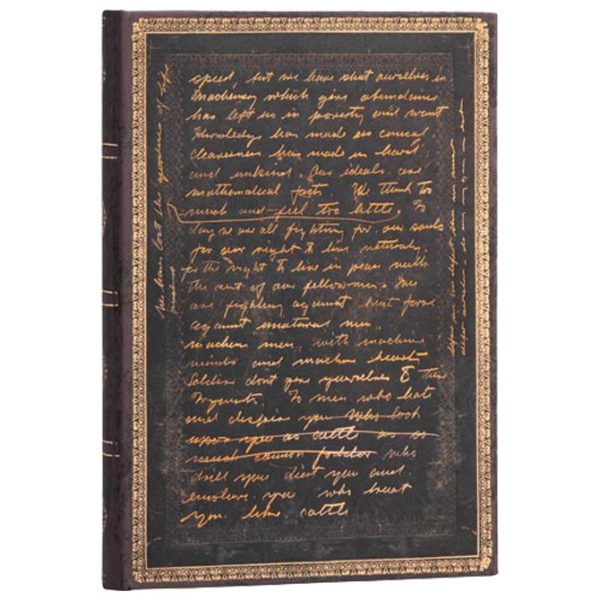 speed, but we have shut ourselves in
Machinery which gives abundance
has left us in poverty and want
Knowledge has made us
cleverness has made us hard
and unkind. Our ideals are
mathematical facts. We think too
much and feel too little. To
day we are all fighting for our souls
for our right to live naturally.
for the right to live in peace with
the rest of our fellow men. We
are fighting against brut force
against unatural men.
machine men, with machine
minds and machine hearts
Soldiers dont give yourselves to these
Tryants. To men who hate
and despise you who look
upon you as cattle as so
much cannon fodder who
drill you diet you and
enslave you who treat
you like cattle
We have lost the of life